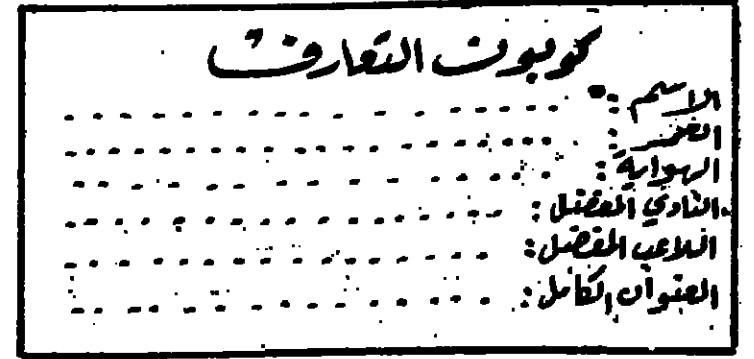 كوبون التعارف
الاسم :
العمر :
الهواية :
النادي المفضل :
اللاعب المفضل :
العنوان الكامل :